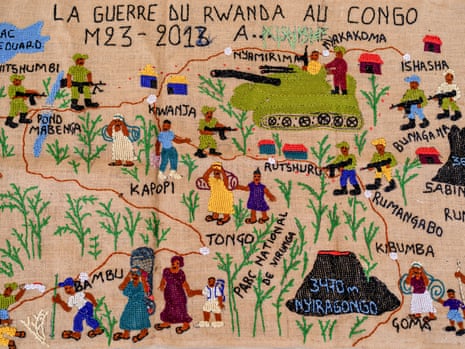 LA GUERRE DU RWANDA AU CONGO
M23-2013 A.
LAC
EDOUARD
NYAMIRIMA
NYAKAKOMA
ISHASHA
VITSHUMBI
POND
MABENGA
KIWANJA
BUNAGANA
KAPOPI
RUTSHURU
SABIN
RUMANGABO
TONGO
PARC NATIONAL
DE VIRUNGA
KIBUMBA
BAMBU
3470m
NYIRAGONGO
GOMA